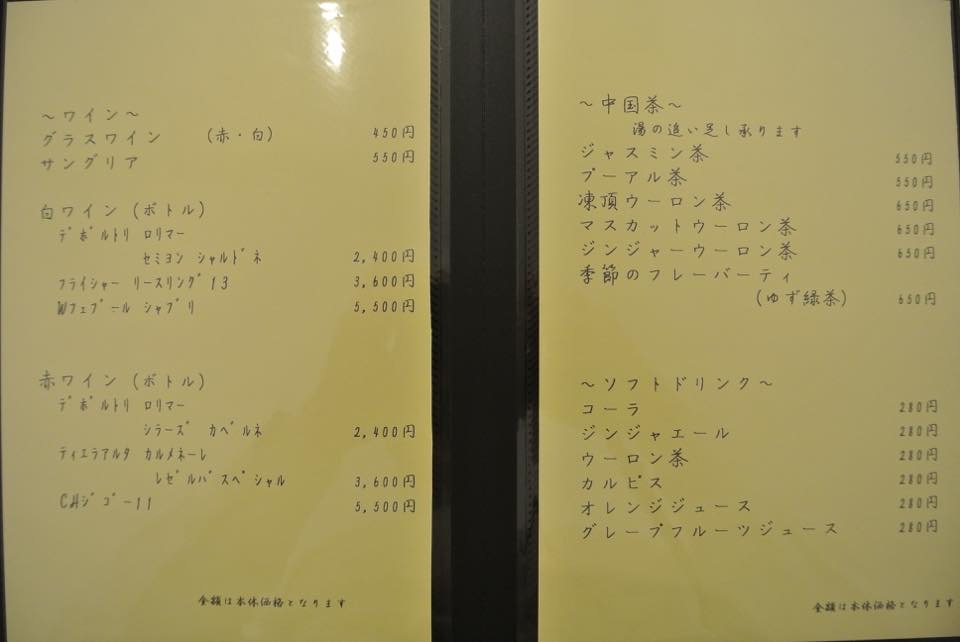 ～ワイン～
グラスワイン (赤・白) 450円
サングリア 550円
白ワイン (ボトル)
ﾃﾞﾎﾞﾙﾄﾘ ﾛﾘﾏｰ
ｾﾐﾖﾝ ｼｬﾙﾄﾞﾈ 2,400円
ﾌﾗｲｼｬｰ ﾘｰｽﾘﾝｸﾞ13 3,600円
Wﾌｪﾌﾞｰﾙ ｼｬﾌﾞﾘ 5,500円
赤ワイン (ボトル)
ﾃﾞﾎﾞﾙﾄﾘ ﾛﾘﾏｰ
ｼﾗｰｽﾞ ｶﾍﾞﾙﾈ 2,400円
ﾃｨｴﾗｱﾙﾀ ｶﾙﾒﾈｰﾚ
ﾚｾﾞﾙﾊﾞｽﾍﾟｼｬﾙ 3,600円
CHｼﾞｺﾞｰ11 5,500円
金額は本体価格となります
～中国茶～
湯の追い足し承ります
ジャスミン茶 550円
プーアル茶 550円
凍頂ウーロン茶 650円
マスカットウーロン茶 650円
ジンジャーウーロン茶 650円
季節のフレーバーティ
(ゆず緑茶) 650円
～ソフトドリンク～
コーラ 280円
ジンジャエール 280円
ウーロン茶 280円
カルピス 280円
オレンジジュース 280円
グレープフルーツジュース 280円
金額は本体価格となります